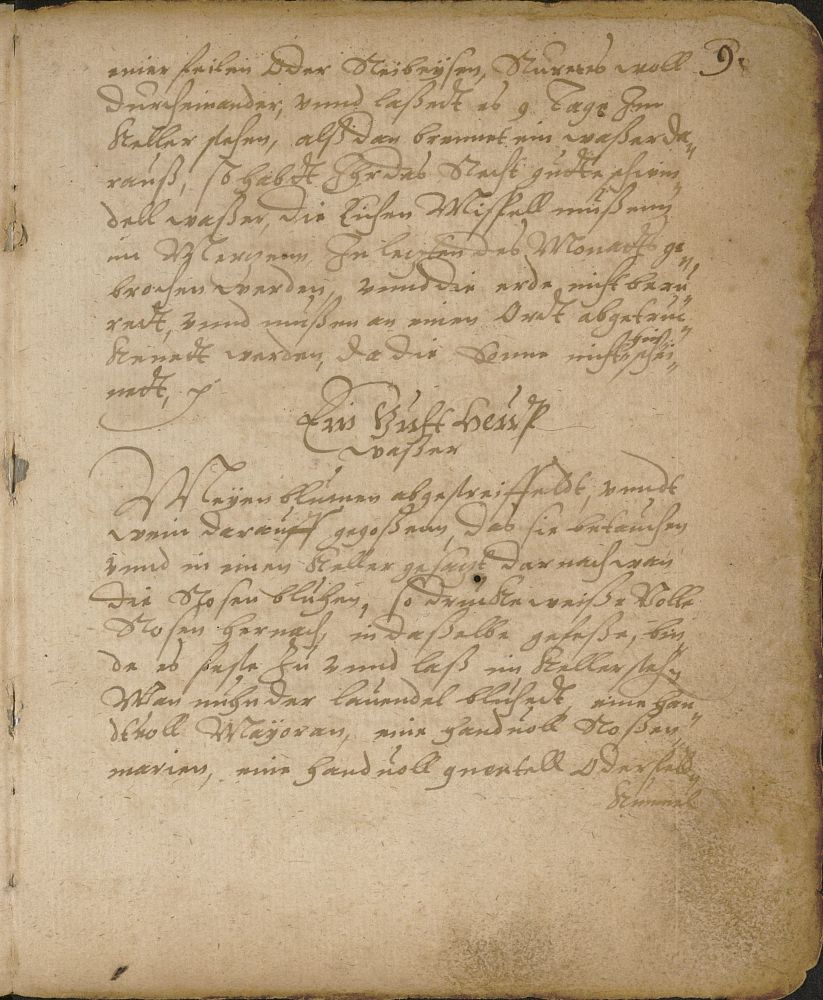 9.
einer feilen Oder Reibeysen, Rures es woll
durcheinander, vnnd laßedt es 9 Tage Im
Keller stehen, alß dan brennet ein waßer da,,
rauß, so habdt Ihr das Recht gudte schwin
dell waßer, die Eichen Mispell mußenn
im Mertzenn, In letzten des Monadts ge,,
brochen werden, vnnd die erde nicht beru,,
redt, vnnd mußen an einen Ordt abgetruc,,
kenedt werden, da die Sonne nicht hin schei,,
nedt,
Ein Guht Heupt
waßer
Meyen blumen abgestreiffeldt, vnndt
wein darauff gegoßenn, das sie betauchen
vnnd in einen Keller gesatzt dar nach wan
die Rosen bluhen, so drucke weiße Volle
Rosen hernach, in daßelbe gefeße, bin
de es feste zu vnnd laß im Keller stehn
Wan nuhn der lauendel bluhedt, eine han,,
dtvoll Mayoran, eine handuoll Roßen,,
marien, eine handuoll quentell Oder feldt,,
Kummel